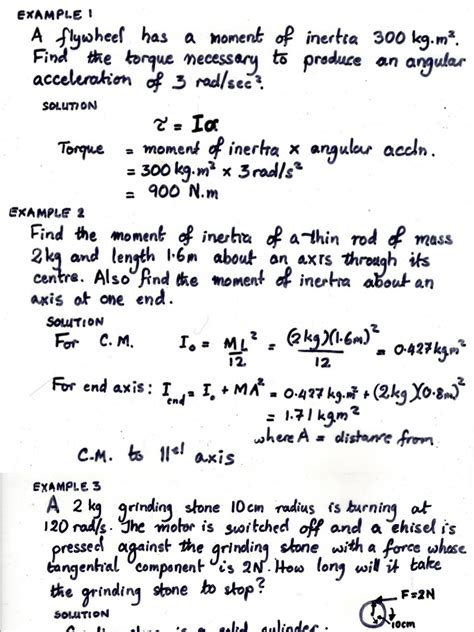 EXAMPLE 1
A flywheel has a moment of inertia 300 kg.m².
Find the torque necessary to produce an angular
acceleration of 3 rad/sec².
SOLUTION
τ = Iα
Torque = moment of inertia x angular accln.
= 300 kg.m² x 3 rad/s²
= 900 N.m
EXAMPLE 2
Find the moment of inertia of a thin rod of mass
2kg and length 1.6m about an axis through its
centre. Also find the moment of inertia about an
axis at one end.
SOLUTION
For C.M. I₀ = ML²/12 = (2kg)(1.6m)²/12 = 0.427kgm²
For end axis: I_end = I₀ + MΛ² = 0.427kg.m² + (2kg)(0.8m)²
= 1.71 kgm²
where Λ = distance from
C.M. to 11el axis
EXAMPLE 3
A 2 kg grinding stone 10cm radius is turning at
120 rad/s. The motor is switched off and a chisel is
pressed against the grinding stone with a force whose
tangential component is 2N. How long will it take
the grinding stone to stop?
F=2N
SOLUTION
10cm
is a solid cylinder.